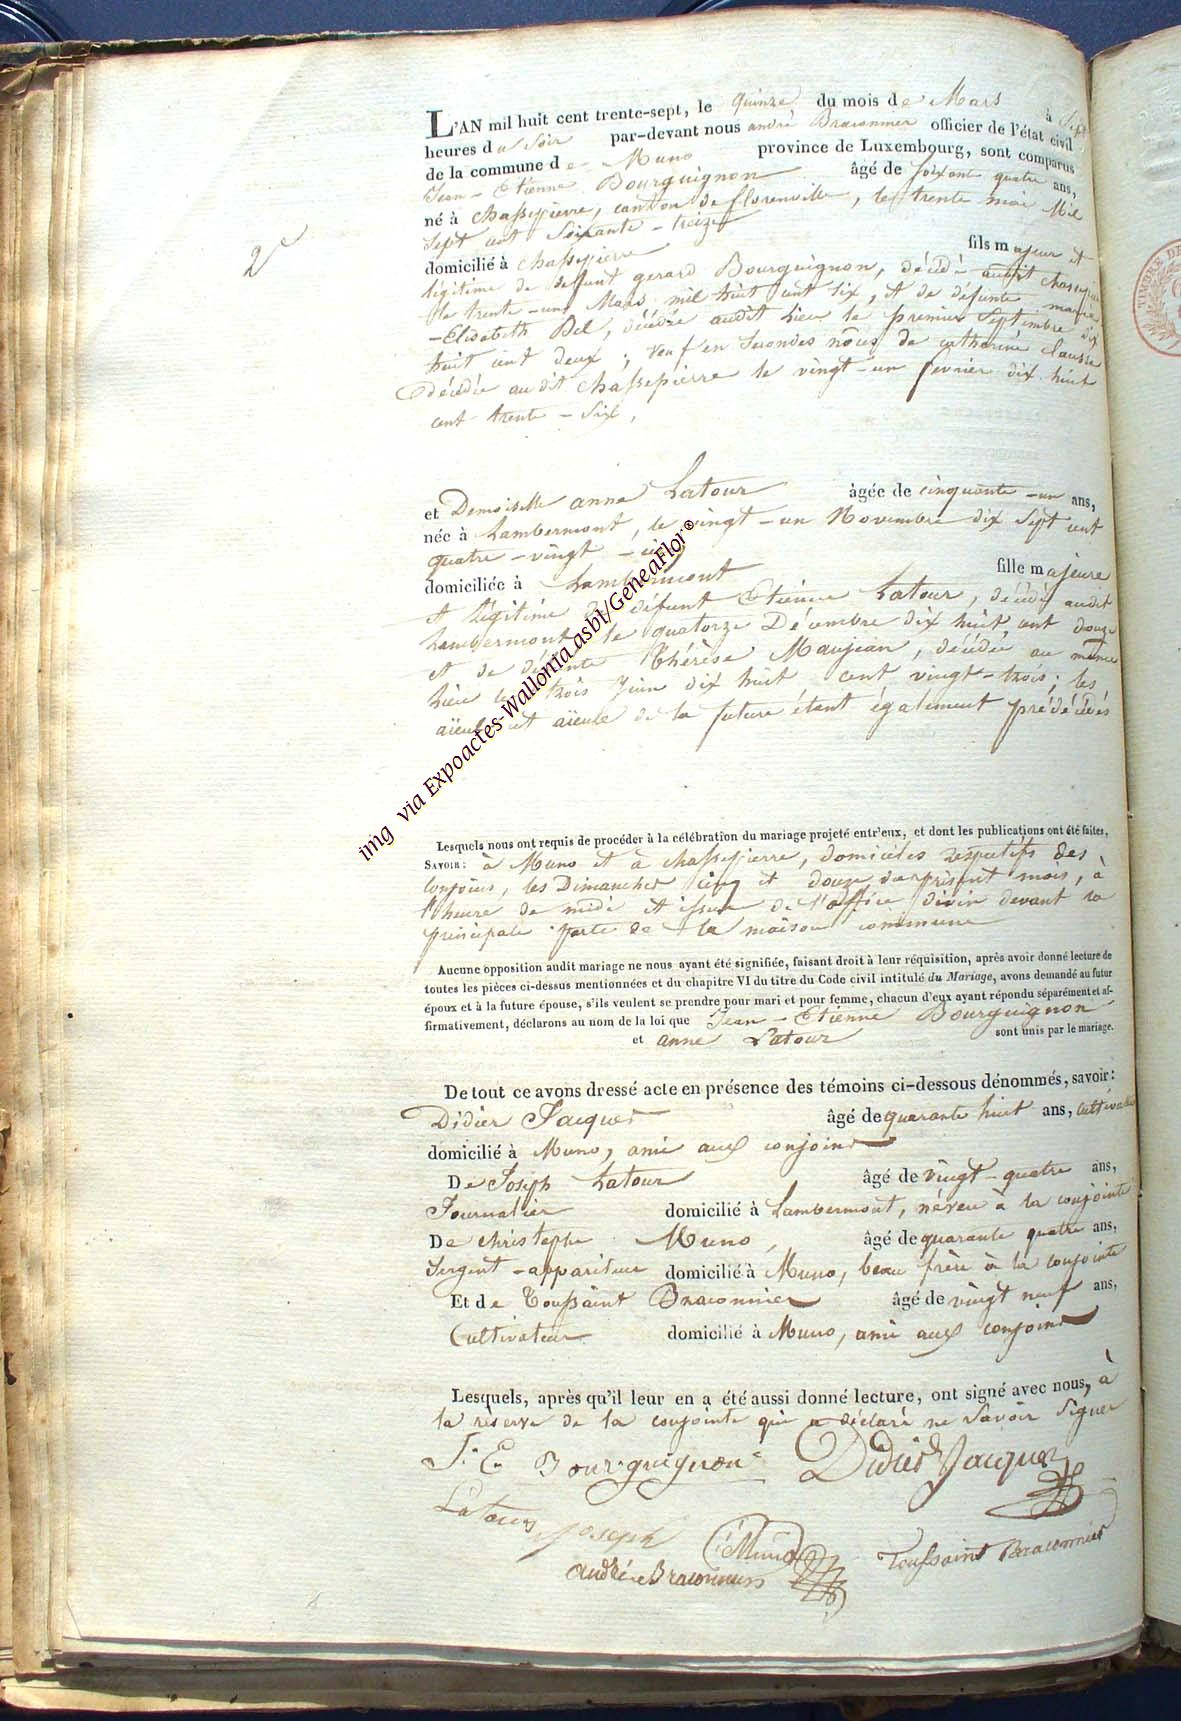 L'AN mil huit cent trente-sept, le quinze du mois de Mars à Sept
heures du Soir par-devant nous andré Braconnier officier de l'état civil
de la commune de Muno province de Luxembourg, sont comparus
Jean-Etienne Bourguignon âgé de soixante quatre ans,
né à Chassepierre, canton de florenville, le trente mai Mil
Sept cent Soixante-treize
domicilié à Chassepierre fils majeur et
légitime de défunt gerard Bourguignon, décédé audit chassepierre
le trente-un Mars mil huit cent six, et de défunte marie
-Elisabeth Bel, décédée audit lieu le premier Septembre dix
huit cent deux ; veuf en Secondes nôces de catherine Clausse
décédée audit Chassepierre le vingt-un fevrier dix huit
cent trente-Six,
2
et Demoiselle anne Latour âgée de cinquante-un ans,
née à Lambermont, le vingt-un Novembre dix Sept cent
quatre-vingt-cinq
domiciliée à Lambermont fille majeure
et légitime de défunt Etienne Latour, décédé audit
Lambermont le quatorze Décembre dix huit cent douze
et de défunte Thérèse Maujean, décédée au même
lieu le trois Juin dix huit cent vingt-trois ; les
aïeuls et aïeule de la future étant également prédécédés
img via Expoactes-Wallonia asbl/GeneaFlor®
Lesquels nous ont requis de procéder à la célébration du mariage projeté entr'eux, et dont les publications ont été faites,
SAVOIR : à Muno et à chassepierre, domiciles respectifs des
conjoins, les Dimanches cinq et douze du présent mois, à
l'heure de midi et issue de l'office divin devant la
principale porte de la maison commune
Aucune opposition audit mariage ne nous ayant été signifiée, faisant droit à leur réquisition, après avoir donné lecture de
toutes les pièces ci-dessus mentionnées et du chapitre VI du titre du Code civil intitulé du Mariage, avons demandé au futur
époux et à la future épouse, s'ils veulent se prendre pour mari et pour femme, chacun d'eux ayant répondu séparément et af-
firmativement, déclarons au nom de la loi que Jean-Etienne Bourguignon
et anne Latour sont unis par le mariage.
De tout ce avons dressé acte en présence des témoins ci-dessous dénommés, savoir :
Didier Jacques âgé de quarante huit ans, cultivateur
domicilié à Muno, ami aux conjoins
De Joseph Latour âgé de vingt-quatre ans,
Journalier domicilié à Lambermont, néveu à la conjointe
De christophe Muno, âgé de quarante quatre ans,
Sergent-appariteur domicilié à Muno, beau frère à la conjointe
Et de Toussaint Braconnier âgé de vingt neuf ans,
Cultivateur domicilié à Muno, ami aux conjoins
Lesquels, après qu'il leur en a été aussi donné lecture, ont signé avec nous, à
la réserve de la conjointe qui a déclaré ne savoir signer
J. E. Bourguignon Didier Jacques
Latour Joseph C Muno Toussaint Braconnier
andré Braconnier